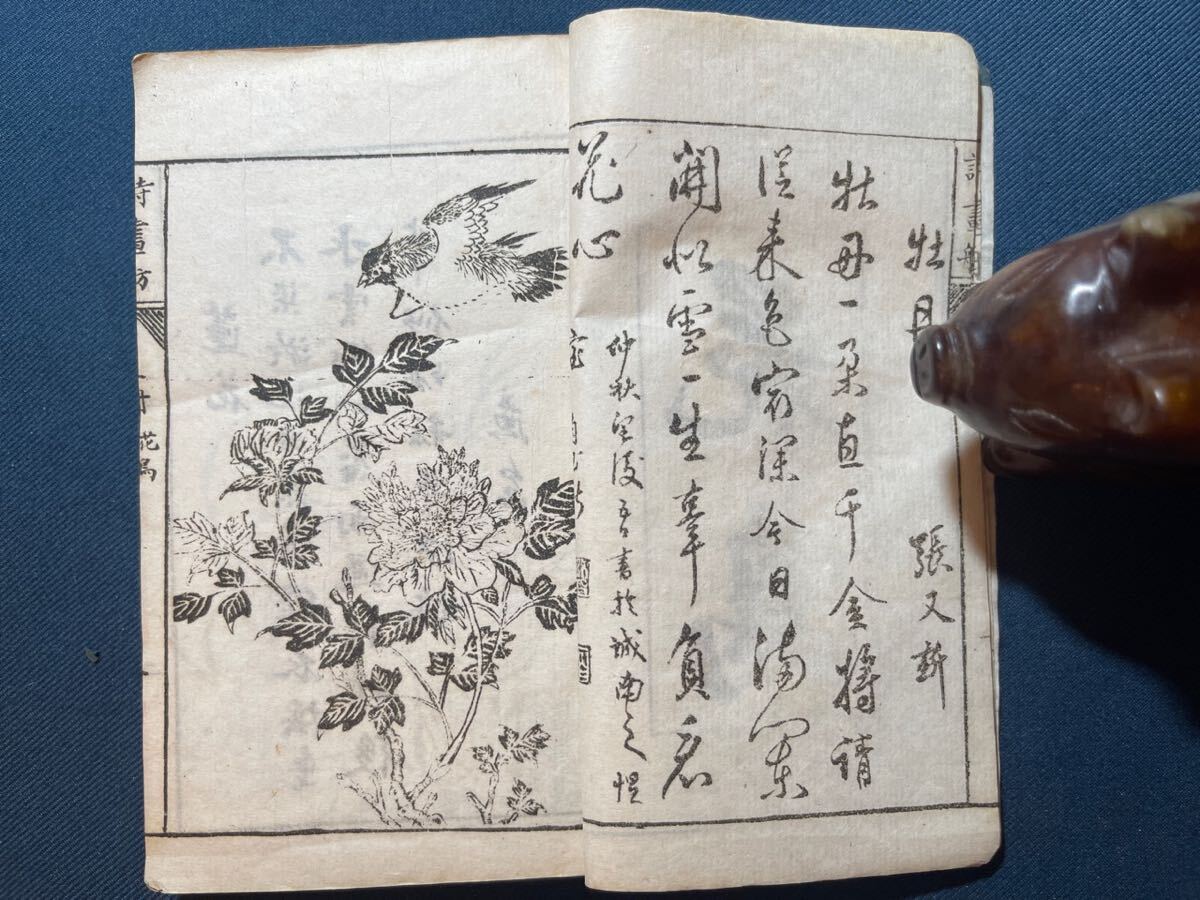 詩畫舫
牡丹
張又新
牡丹一朵直千金將謂
從来色㝡深今日滿闌
開似雪一生辜負看
花心
仲秋望後 書於城南之惺
室
詩畫舫
花鳥